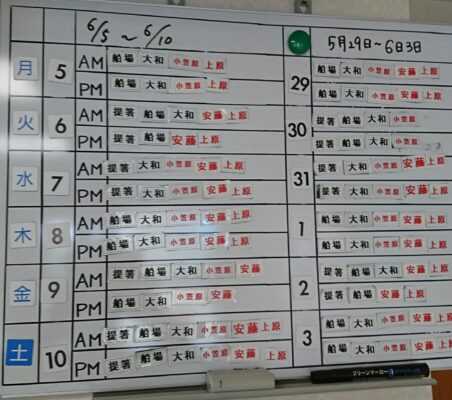 6/5 ～ 6/10
5月29日～6日3日
月 5 AM 船場 大和 小笠原 上原
PM 船場 大和 小笠原 上原
29 船場 大和 小笠原 安藤 上原
船場 大和 小笠原 安藤 上原
火 6 AM 提箸 船場 大和 安藤 上原
PM 提箸 船場 安藤 上原
30 提箸 船場 大和 小笠原
提箸 船場 大和 小笠原
水 7 AM 提箸 大和 小笠原 安藤 上原
PM 提箸 大和 小笠原 安藤 上原
31 提箸 大和 小笠原 安藤 上原
提箸 大和 小笠原 安藤 上原
木 8 AM 船場 大和 小笠原 安藤 上原
PM 船場 大和 小笠原 安藤 上原
1 船場 大和 小笠原 安藤 上原
船場 大和 小笠原 安藤 上原
金 9 AM 提箸 船場 大和 小笠原 安藤
PM 船場 大和 小笠原 安藤
2 提箸 船場 大和 小笠原 安藤
提箸 船場 大和 安藤
土 10 AM 提箸 船場 大和 小笠原 安藤 上原
PM 提箸 船場 大和 小笠原 安藤 上原
3 船場 大和 小笠原 安藤 上原
船場 大和 小笠原 安藤 上原